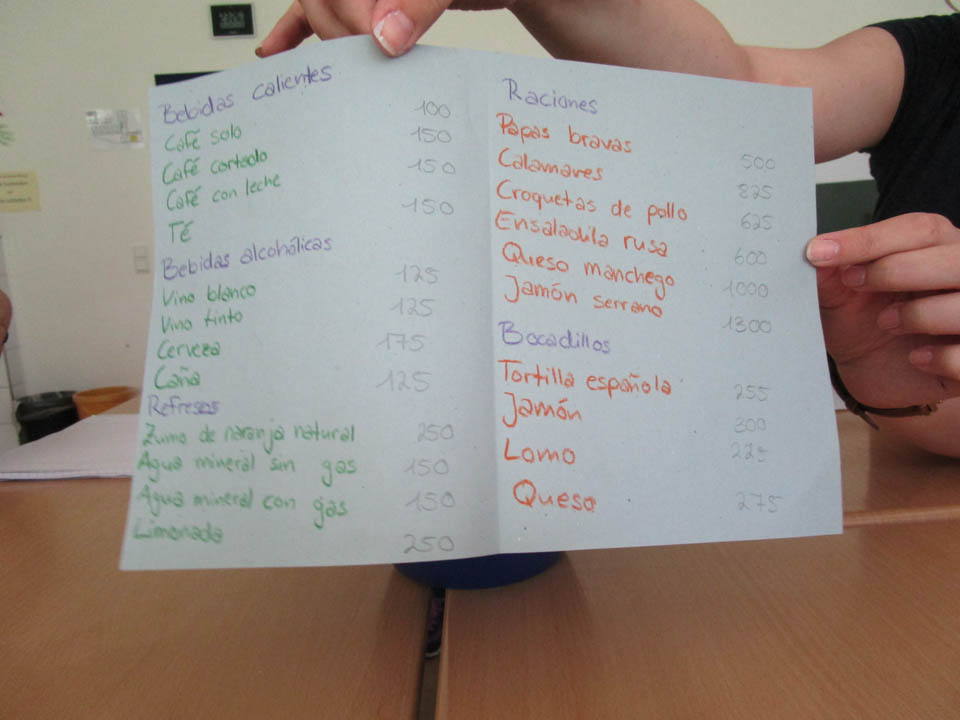 Bebidas calientes
Café solo 100
Café cortado 150
Café con leche 150
Té 150
Bebidas alcohólicas
Vino blanco 125
Vino tinto 125
Cerveza 175
Caña 125
Refresos
Zumo de naranja natural 250
Agua mineral sin gas 150
Agua mineral con gas 150
Limonada 250
Raciones
Papas bravas 500
Calamares 825
Croquetas de pollo 625
Ensaladila rusa 600
Queso manchego 1000
Jamón serrano 1300
Bocadillos
Tortilla española 255
Jamón 300
Lomo 225
Queso 275